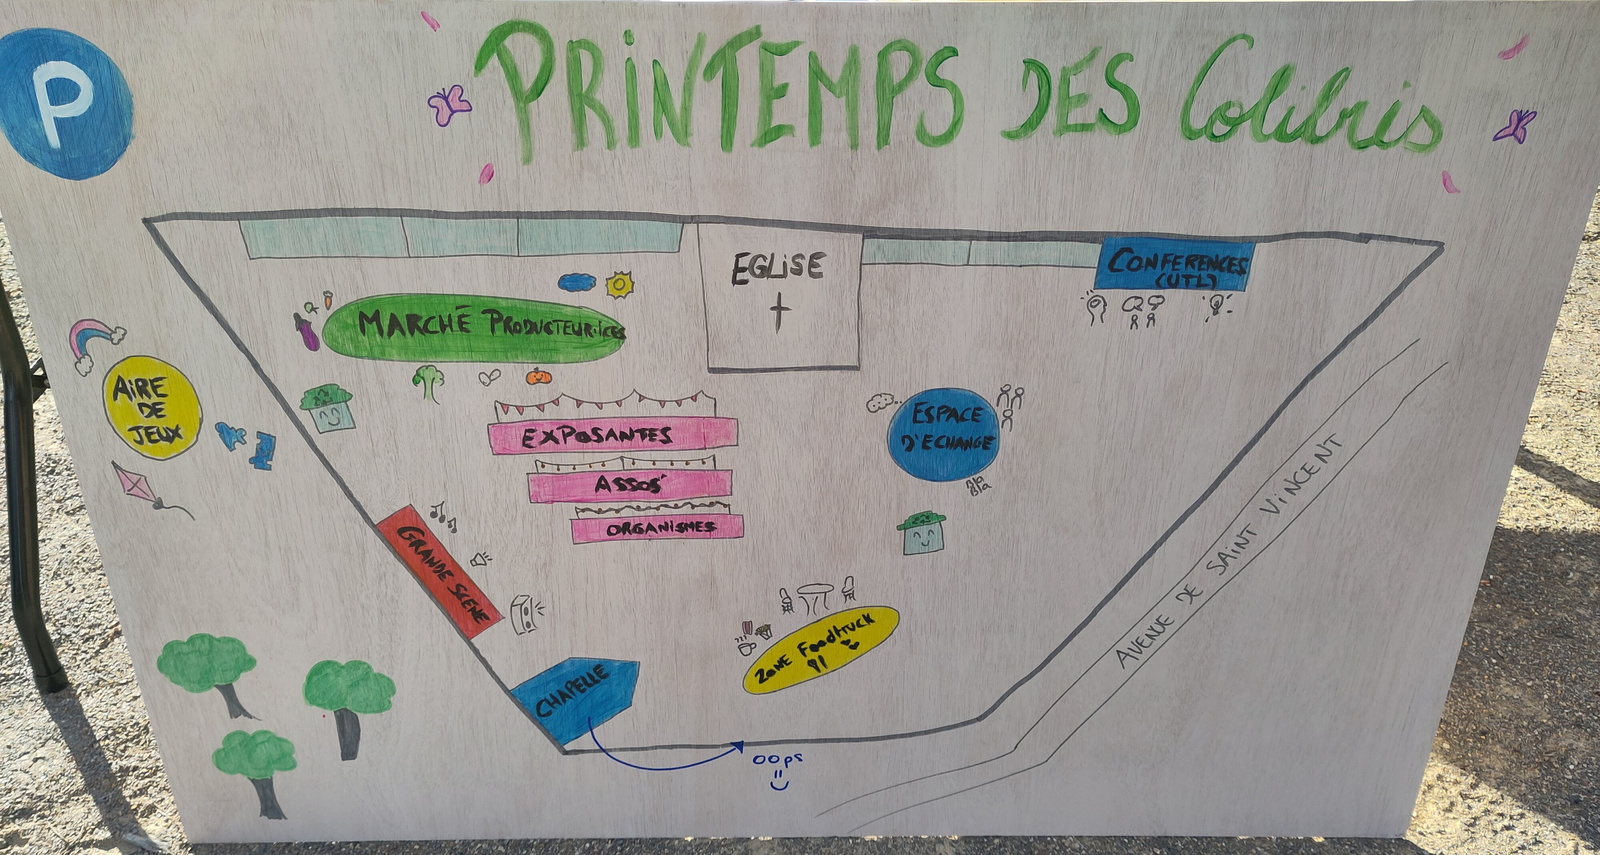 P
PRINTEMPS DES Colibris
EGLISE
CONFERENCES
(UTL)
MARCHÉ PRODUCTEUR·ICES
AIRE
DE
JEUX
EXPOSANTES
ASSOS'
ORGANISMES
ESPACE
D'ECHANGE
Bla
Bla
GRANDE SCENE
ZONE Foodtruck
CHAPELLE
OOPS
AVENUE DE SAINT VINCENT